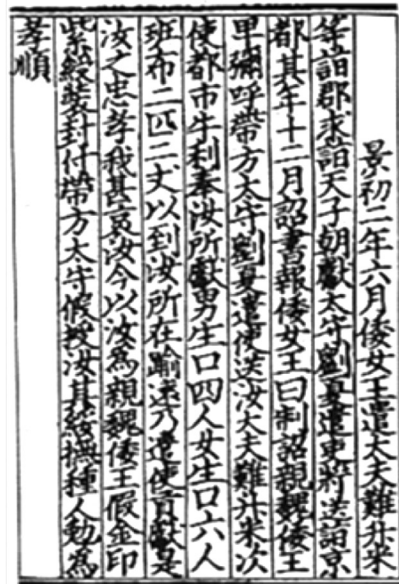 景初二年六月倭女王遣大夫難升米
等詣郡求詣天子朝獻太守劉夏遣吏將送詣京
都其年十二月詔書報倭女王曰制詔親魏倭王
卑彌呼帶方太守劉夏遣使送汝大夫難升米次
使都市牛利奉汝所獻男生口四人女生口六人
班布二匹二丈以到汝所在踰遠乃遣使貢獻是
汝之忠孝我甚哀汝今以汝為親魏倭王假金印
紫綬裝封付帶方太守假授汝其綏撫種人勉為
孝順